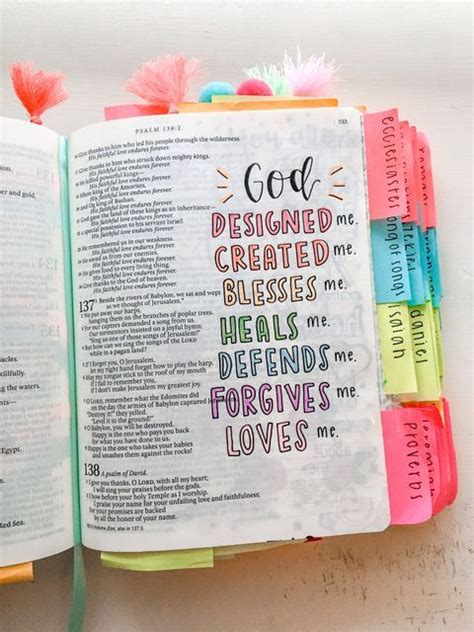 PSALM 138:2
733
16 Give thanks to him who led his people through the wilderness.
His faithful love endures forever.
17 Give thanks to him who struck down mighty kings.
His faithful love endures forever.
18 He killed powerful kings—
His faithful love endures forever.
19 Sihon king of the Amorites,
His faithful love endures forever.
20 and Og king of Bashan.
His faithful love endures forever.
21 God gave the land of these kings as an inheritance—
His faithful love endures forever.
22 a special possession to his servant Israel.
His faithful love endures forever.
23 He remembered us in our weakness.
His faithful love endures forever.
24 He saved us from our enemies.
His faithful love endures forever.
25 He gives food to every living thing.
His faithful love endures forever.
26 Give thanks to the God of heaven.
His faithful love endures forever.
137 Beside the rivers of Babylon, we sat and wept
as we thought of Jerusalem.
2 We put away our harps,
hanging them on the branches of poplar trees.
3 For our captors demanded a song from us.
Our tormentors insisted on a joyful hymn:
"Sing us one of those songs of Jerusalem!"
4 But how can we sing the songs of the LORD
while in a pagan land?
5 If I forget you, O Jerusalem,
let my right hand forget how to play the harp.
6 May my tongue stick to the roof of my mouth
if I fail to remember you,
if I don't make Jerusalem my greatest joy.
7 O LORD, remember what the Edomites did
on the day the armies of Babylon captured
"Destroy it!" they yelled.
"Level it to the ground!"
8 O Babylon, you will be destroyed.
Happy is the one who pays you back
for what you have done to us.
9 Happy is the one who takes your babies
and smashes them against the rocks!
138 A psalm of David.
1 I give you thanks, O LORD, with all my heart;
I will sing your praises before the gods.
2 I bow before your holy Temple as I worship.
I praise your name for your unfailing love and faithfulness;
for your promises are backed
by all the honor of your name.
God
DESIGNED me.
CREATED me.
BLESSES me.
HEALS me.
DEFENDS me.
FORGIVES me.
LOVES me.
ecclesiastes
song of songs
isaiah
daniel
proverbs
Egypt.
Red Sea.